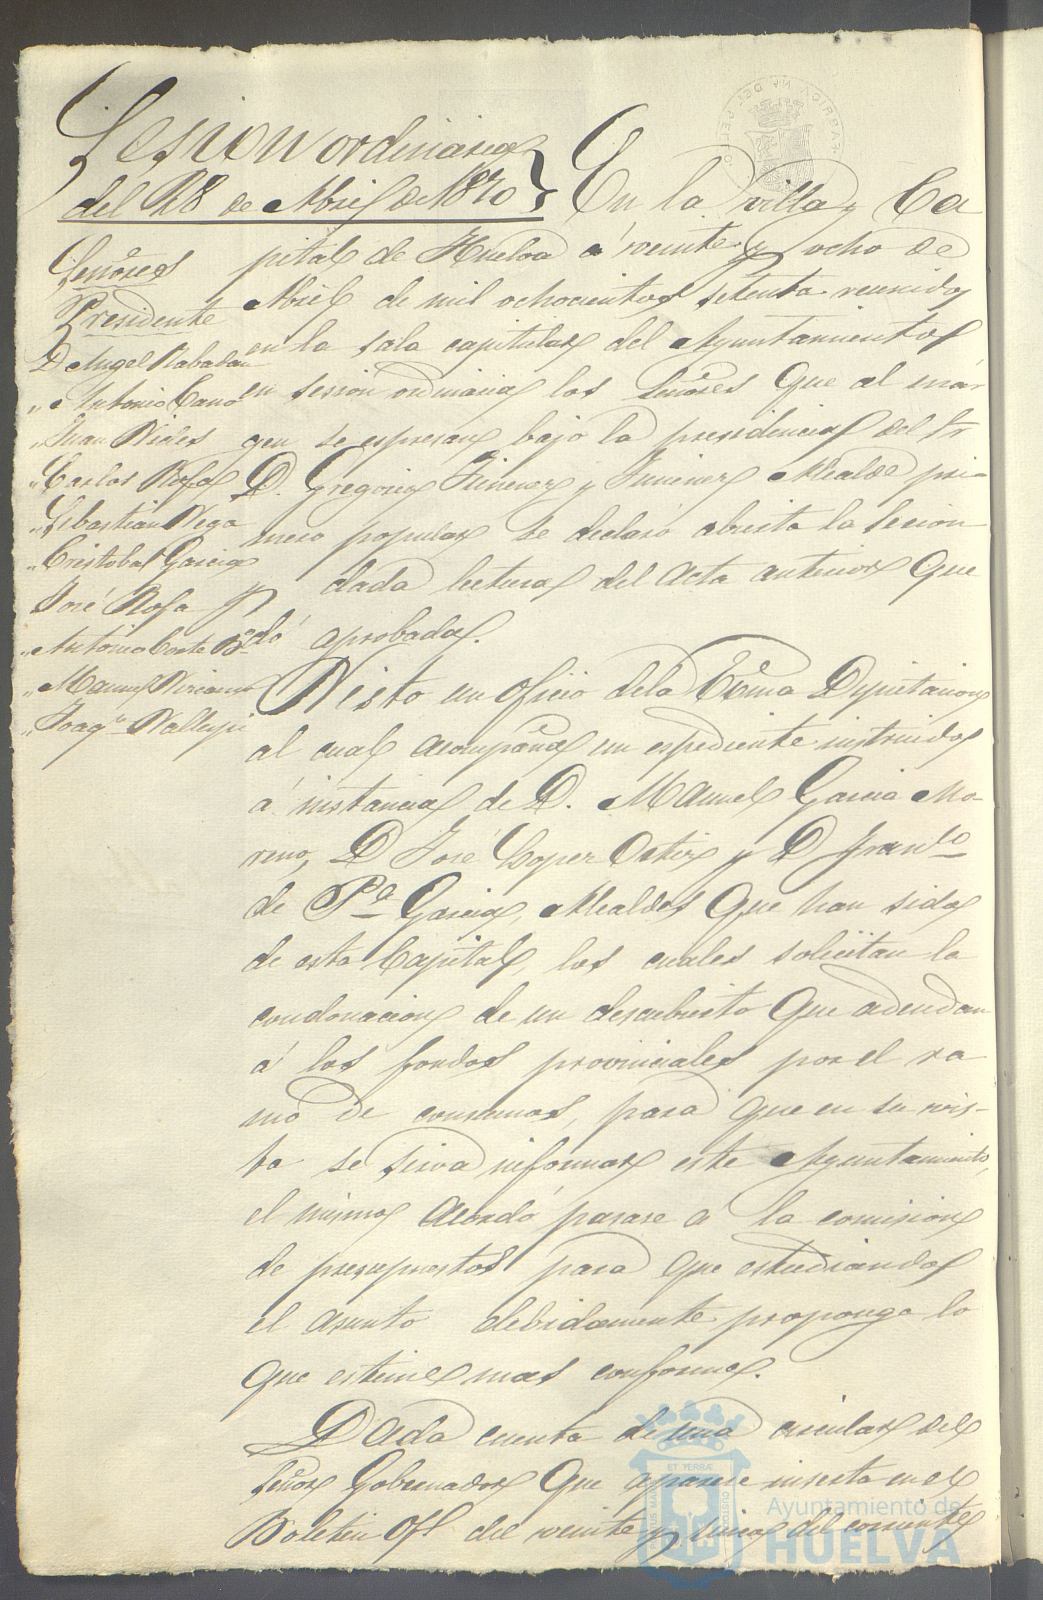 Sesion ordinaria
del 28 de Abril de 1870
Señores
Presidente
D. Angel Rabadan
" Antonio Cano
" Juan
" Carlos Rofa
" Sebastian Vega
" Cristobal Garcia
José Rofa
" Antonio Conte
" Manuel
" Joaqn Vallejo
En la villa y Ca
pital de Huelva á veinte y ocho de
Abril de mil ochocientos setenta reunidos
en la sala capitular del Ayuntamiento
en sesion ordinaria los Señores que al már
gen se espresan bajo la presidencia del Sr
D. Gregorio Jimenez y Jimenez Alcalde pri
mero popular se declaró abierta la sesion
dada lectura del acta anterior que
dó aprobada.
Visto un oficio de la Exma Diputacion
al cual acompaña un espediente instruido
á instancia de D. Manuel Garcia Mo-
reno, D José Lopez Ortiz y D Franco
de Pa Garcia, Alcaldes que han sido
de esta Capital, los cuales solicitan la
condonacion de un descubierto que adeudan
á los fondos provinciales por el ra
mo de consumos, para que en su vis-
ta se sirva informar este Ayuntamiento,
el mismo acordó pasase á la comision
de presupuestos para que estudiando
el asunto debidamente proponga lo
que estime mas conforme.
Dada cuenta de una circular del
Señor Gobernador que aparece inserta en el
Boletin Ofl del veinte y cinco del corriente
Ayuntamiento de
HUELVA